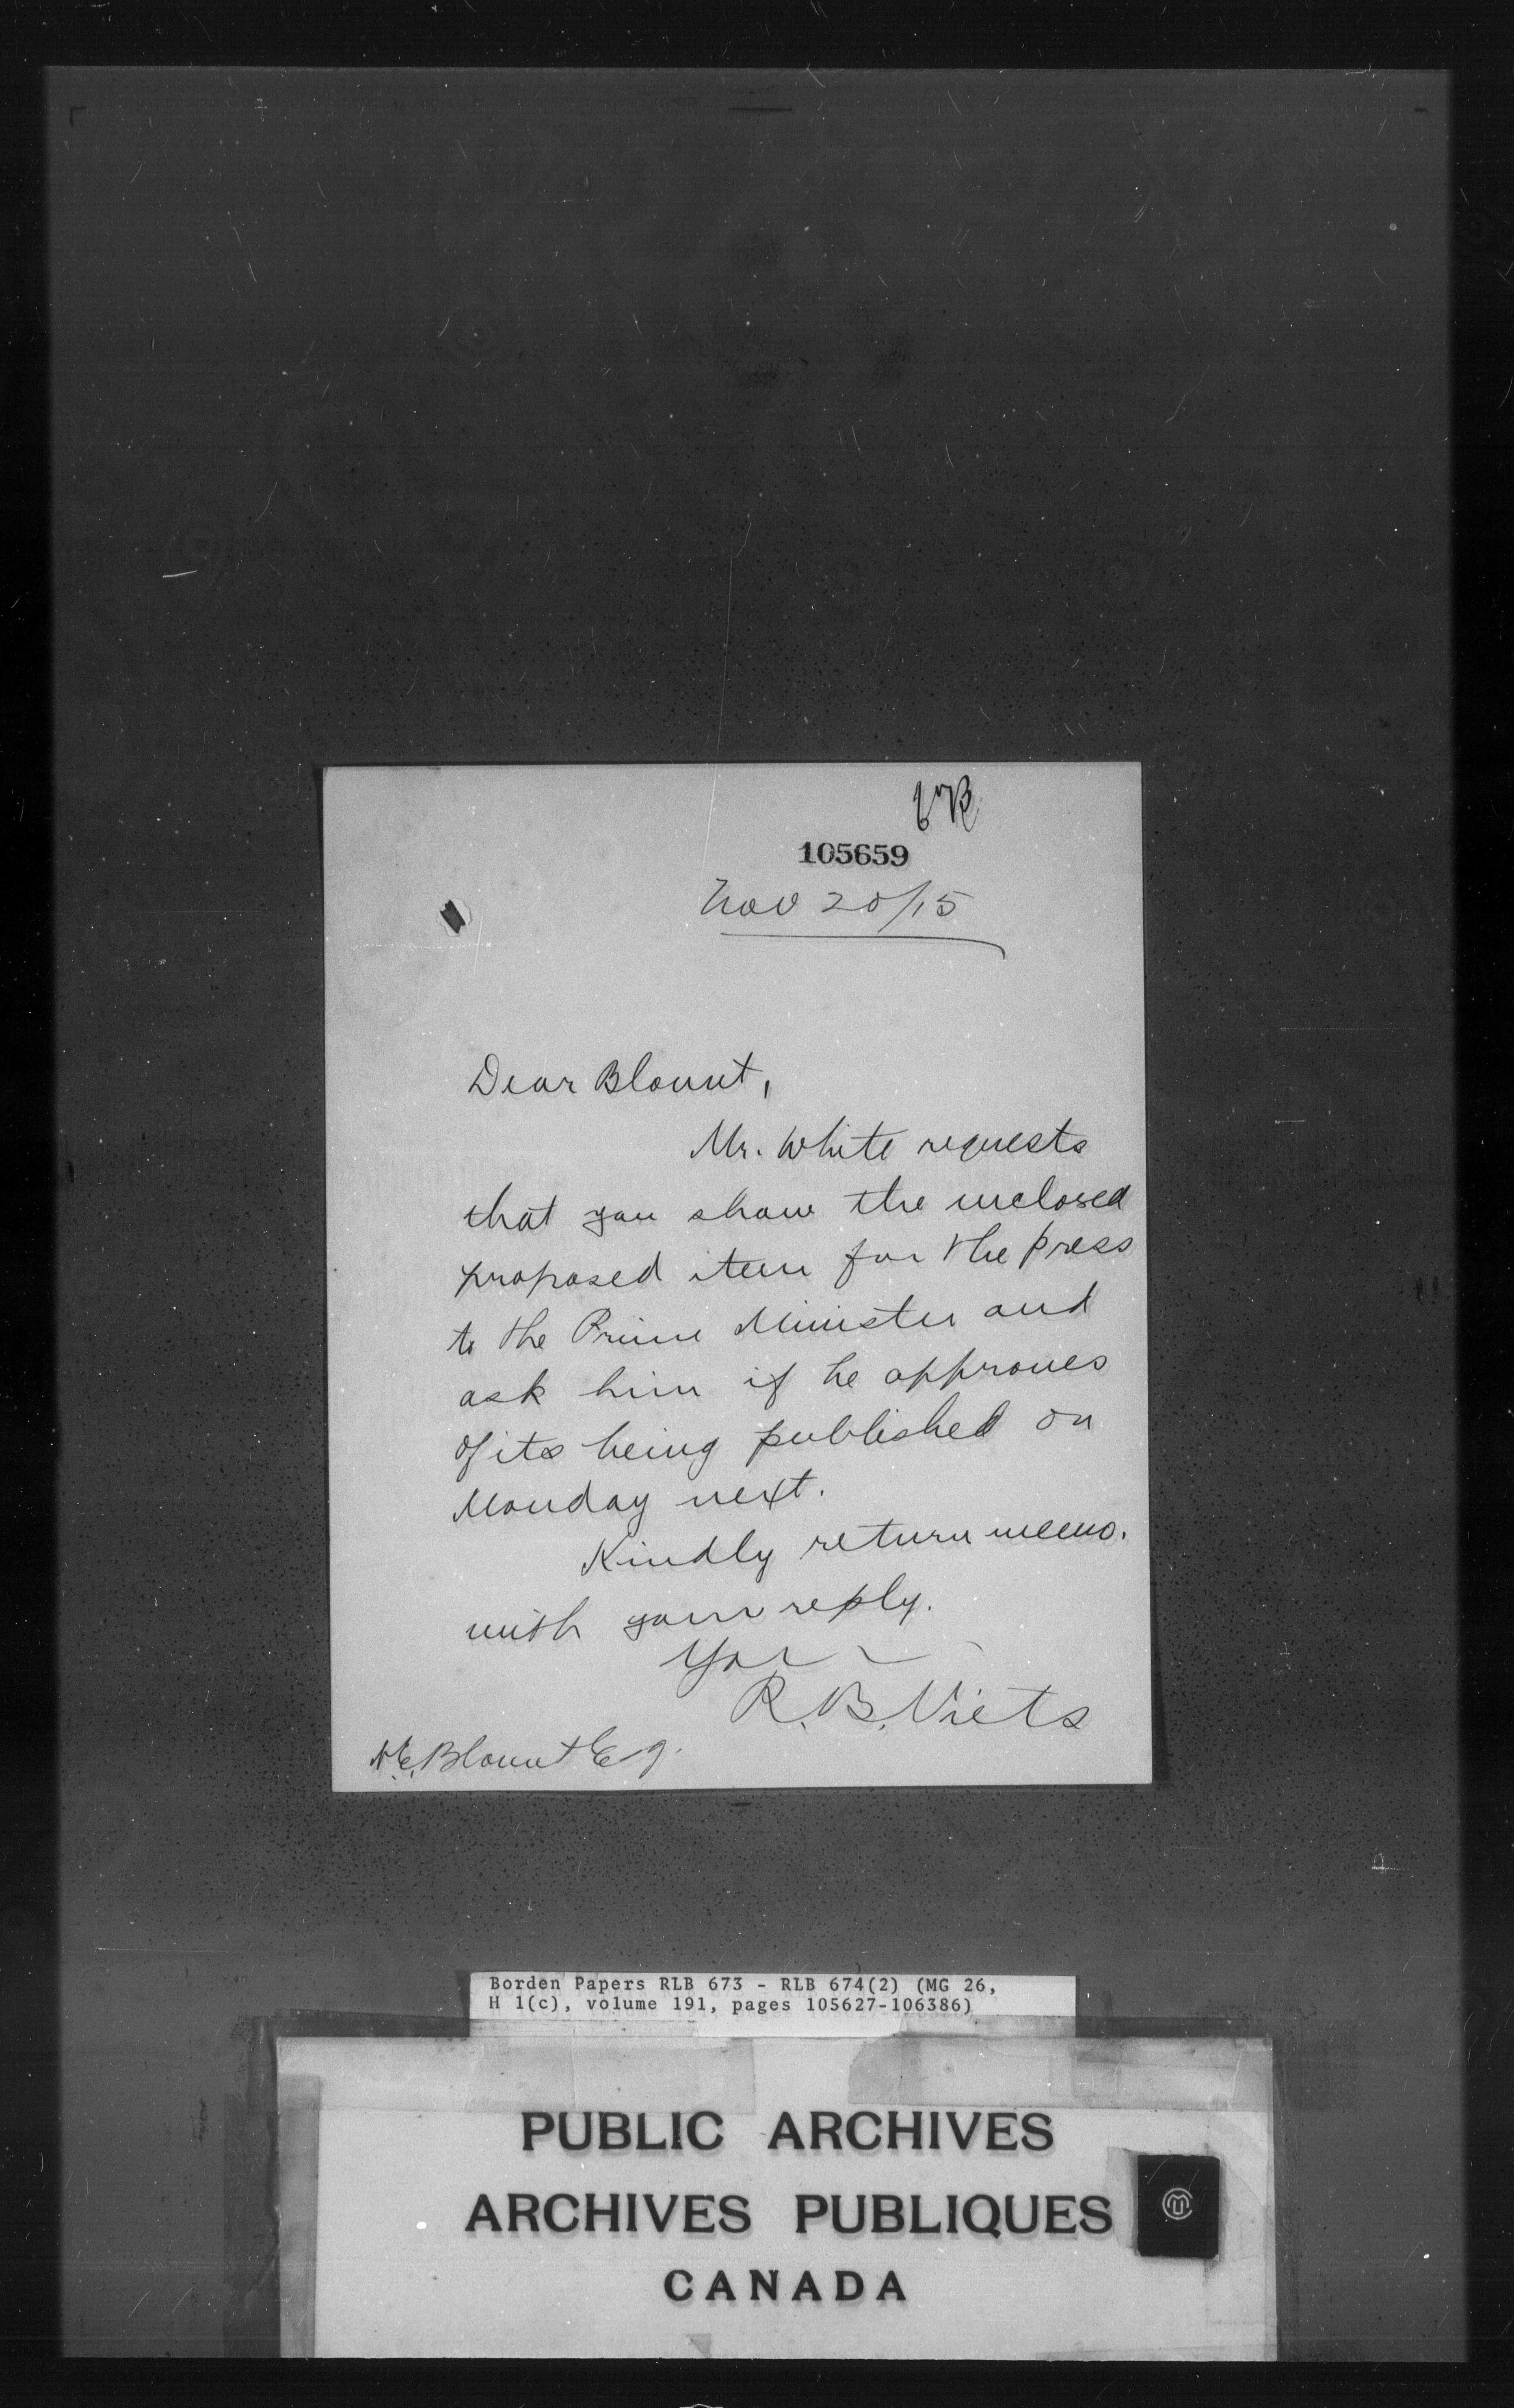 105659
Nov 20/15
Dear Blount,
Mr. White requests
that you show the inclosed
proposed item for the press
to the Prime Minister and
ask him if he approves
of its being published on
Monday next.
Kindly return memo.
with your reply.
R. B. Viets
Blount Esq.
Borden Papers RLB 673 - RLB 674(2) (MG 26,
H 1(c), volume 191, pages 105627-106386)
PUBLIC ARCHIVES
ARCHIVES PUBLIQUES
CANADA